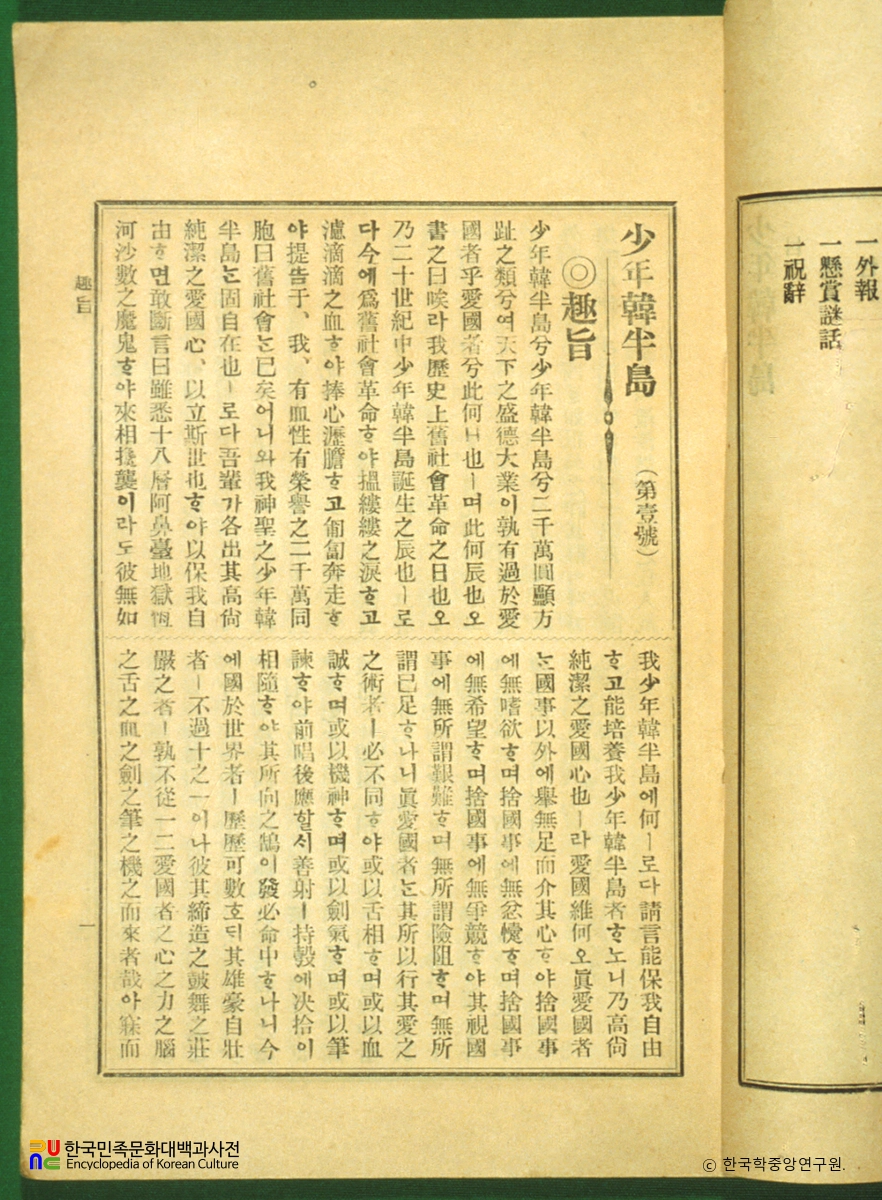 一外報
一懸賞謎話
一祝辭
少年韓半島 (第壹號)
◎趣旨
少年韓半島兮少年韓半島兮二千萬圓顱方
趾之類兮여天下之盛德大業이孰有過於愛
國者乎愛國者兮此何ㅂ也ㅣ며此何辰也오
書之曰唉라我歷史上舊社會革命之日也오
乃二十世紀中少年韓半島誕生之辰也ㅣ로
다今에爲舊社會革命ᄒᆞ야搵縷縷之淚ᄒᆞ고
濾滴滴之血ᄒᆞ야捧心瀝膽ᄒᆞ고匍匐奔走ᄒᆞ
야提告于、我、有血性有榮譽之二千萬同
胞曰舊社會ᄂᆞᆫ已矣어니와我神聖之少年韓
半島ᄂᆞᆫ固自在也ㅣ로다吾輩가各出其高尙
純潔之愛國心、以立斯世也ᄒᆞ야以保我自
由ᄒᆞ면敢斷言曰雖悉十八層阿鼻臺地獄恆
河沙數之魔鬼ᄒᆞ야來相 襲이라도彼無如
我少年韓半島에何ㅣ로다請言能保我自由
ᄒᆞ고能培養我少年韓半島者ᄒᆞ노니乃高尙
純潔之愛國心也ㅣ라愛國維何오眞愛國者
ᄂᆞᆫ國事以外에擧無足而介其心ᄒᆞ야捨國事
에無嗜欲ᄒᆞ며捨國事에無忿懥ᄒᆞ며捨國事
에無希望ᄒᆞ며捨國事에無爭競ᄒᆞ야其視國
事에無所謂艱難ᄒᆞ며無所謂險阻ᄒᆞ며無所
謂已足ᄒᆞ나니眞愛國者ᄂᆞᆫ其所以行其愛之
之術者ㅣ必不同ᄒᆞ야或以舌相ᄒᆞ며或以血
誠ᄒᆞ며或以機神ᄒᆞ며或以劍氣ᄒᆞ며或以筆
諫ᄒᆞ야前唱後應ᄒᆞᆯᄉᆡ善射ㅣ持彀에决拾이
相隨ᄒᆞ야其所向之鵠이發必命中ᄒᆞ나니今
에國於世界者ㅣ歷歷可數호ᄃᆡ其雄豪自壯
者ㅣ不過十之一이나彼其締造之鼓舞之莊
嚴之者ㅣ孰不從一二愛國者之心之力之腦
之舌之血之劍之筆之機之而來者哉아寐而
趣旨
一
한국민족문화대백과사전
Encyclopedia of Korean Culture
ⓒ 한국학중앙연구원.